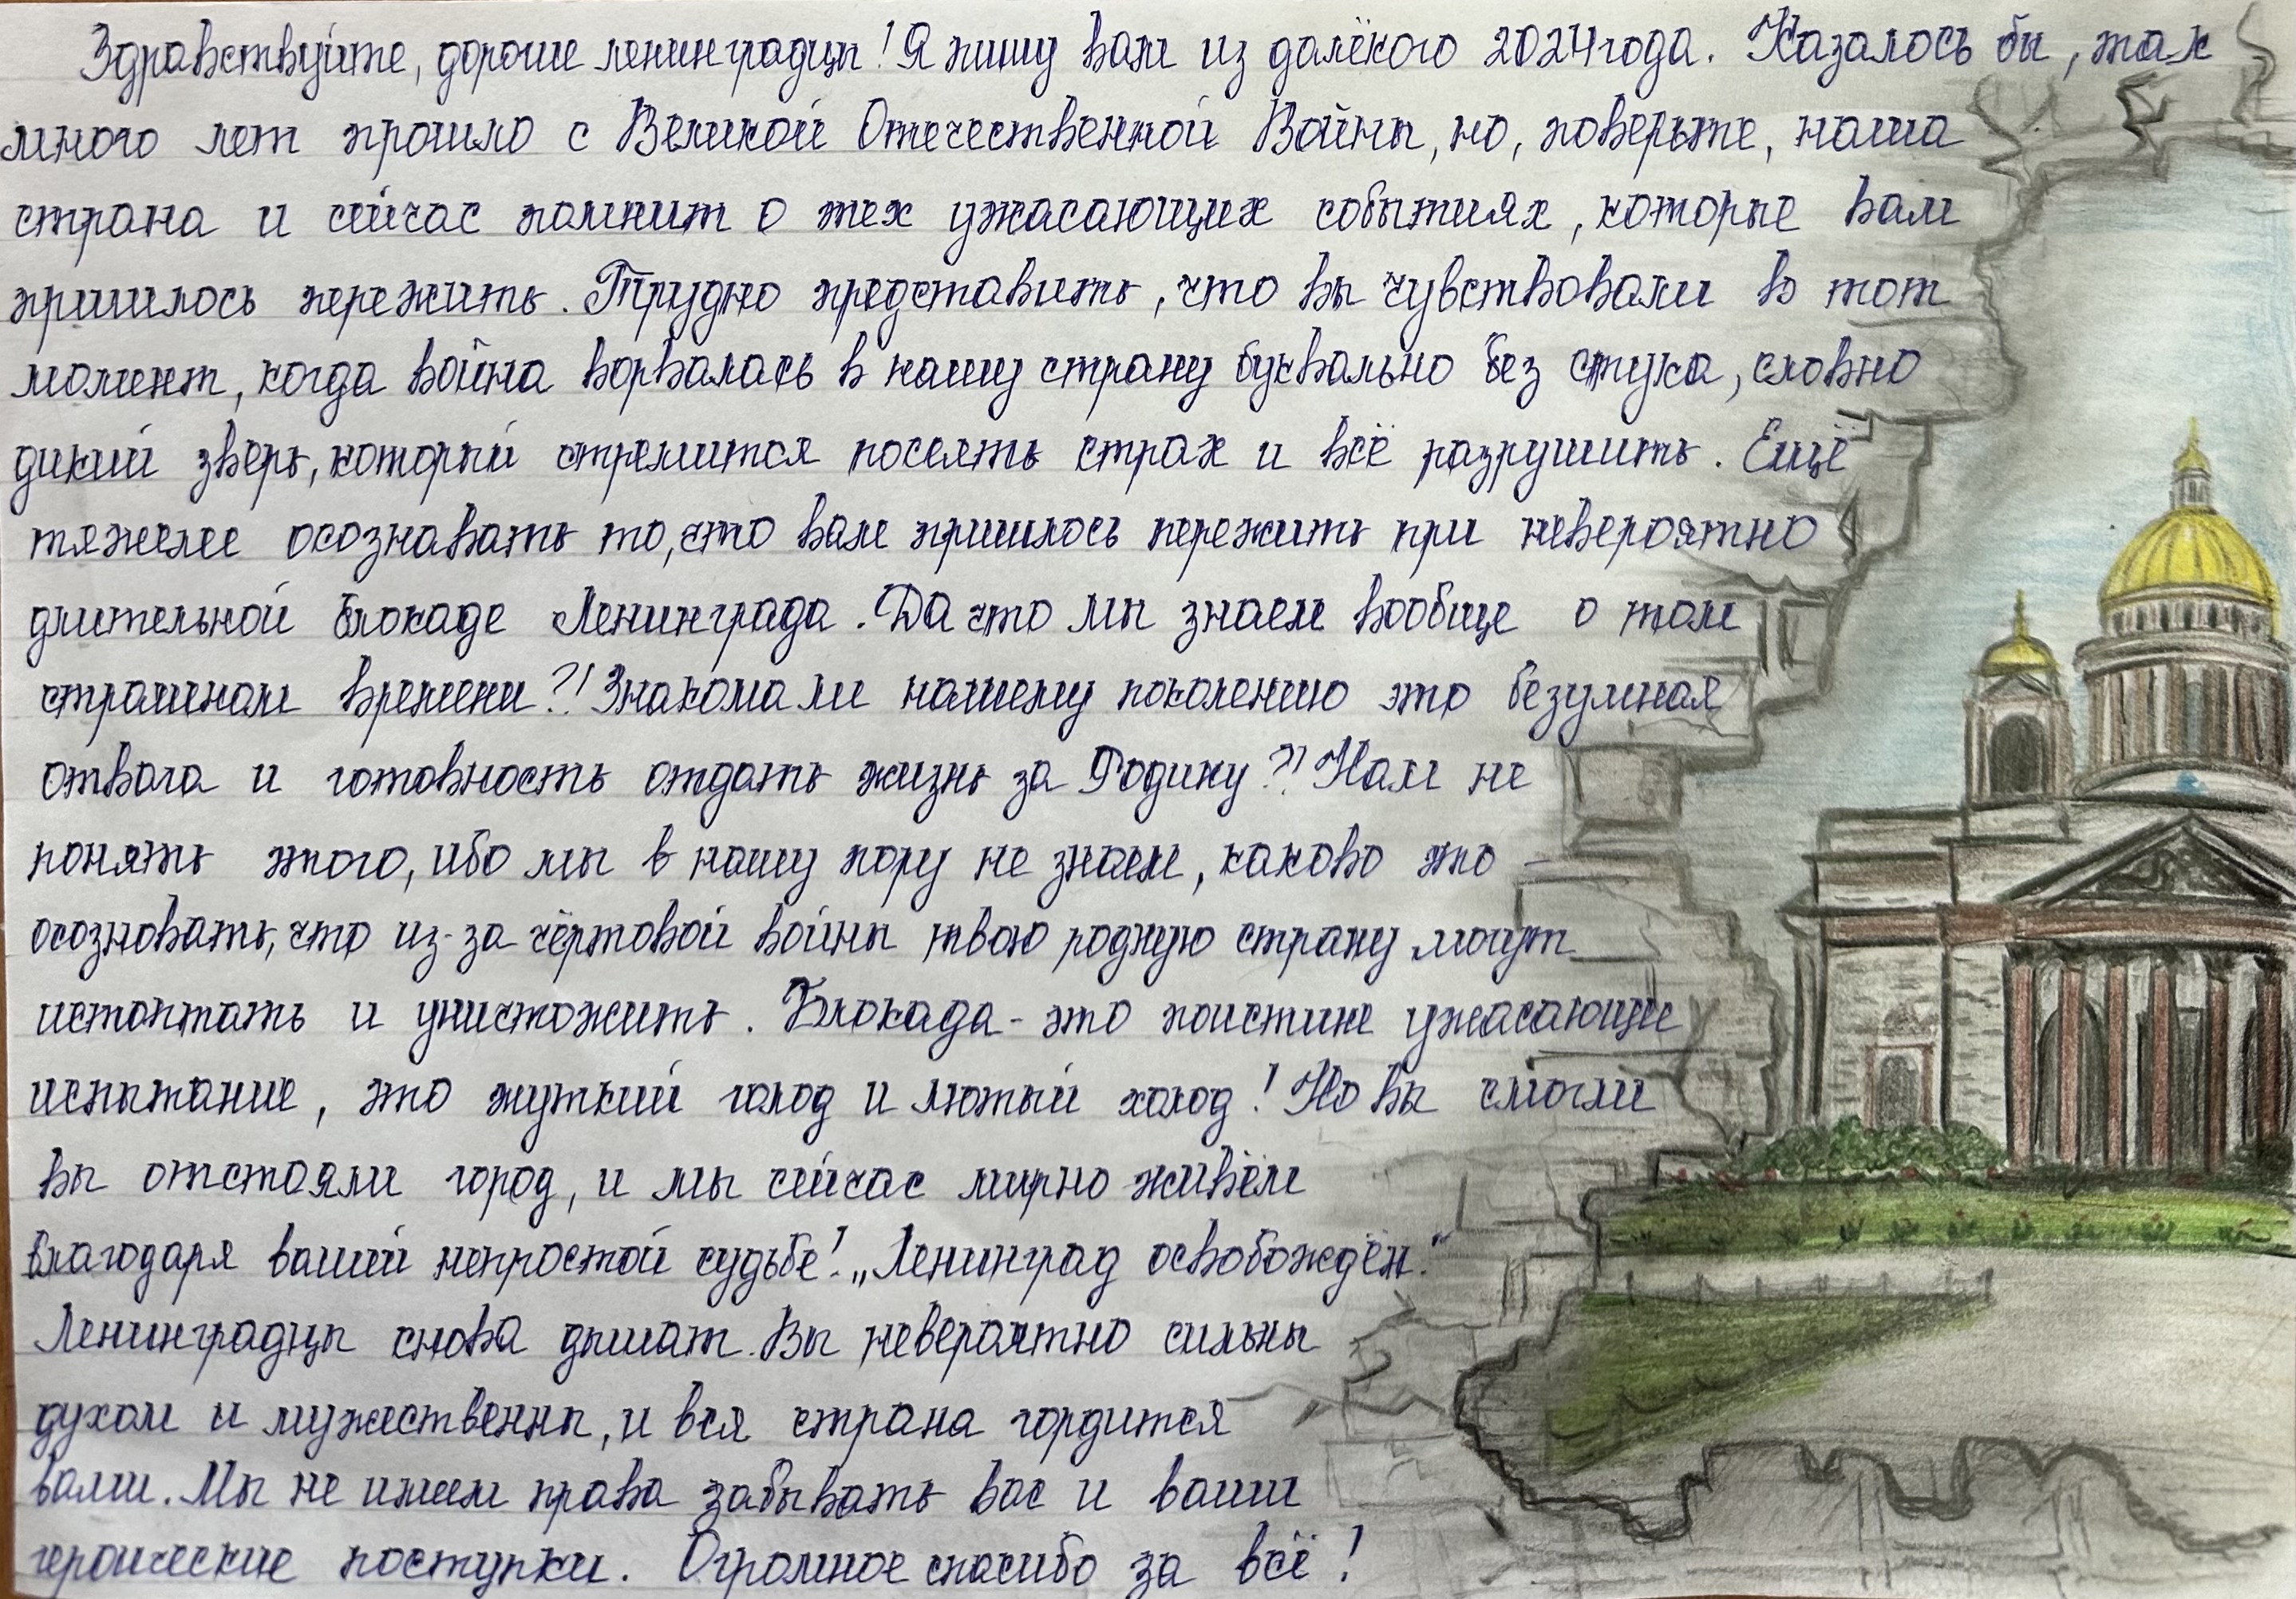 Здравствуйте, дорогие ленинградцы! Я пишу вам из далёкого 2024 года. Казалось бы, так
много лет прошло с Великой Отечественной Войны, но, поверьте, наша
страна и сейчас помнит о тех ужасающих событиях, которые вам
пришлось пережить. Трудно представить, что вы чувствовали в тот
момент, когда война ворвалась в нашу страну буквально без стука, словно
дикий зверь, который стремится посеять страх и всё разрушить. Ещё
тяжелее осознавать то, что вам пришлось пережить при невероятно
длительной блокаде Ленинграда. Да что мы знаем вообще о том
страшном времени?! Знакома ли нашему поколению это безумная
отвага и готовность отдать жизнь за Родину?! Нам не
понять этого, ибо мы в нашу пору не знаем, каково это -
осозновать, что из-за чёртовой войны твою родную страну могут
истоптать и уничтожить. Блокада - это поистине ужасающие
испытание, это жуткий голод и лютый холод! Но вы смогли
вы отстояли город, и мы сейчас мирно живём
благодаря вашей непростой судьбе! „Ленинград освобождён."
Ленинградцы снова дышат. Вы невероятно сильны
духом и мужественны, и вся страна гордится
вами. Мы не имеем права забывать вас и ваши
героические поступки. Огромное спасибо за всё!